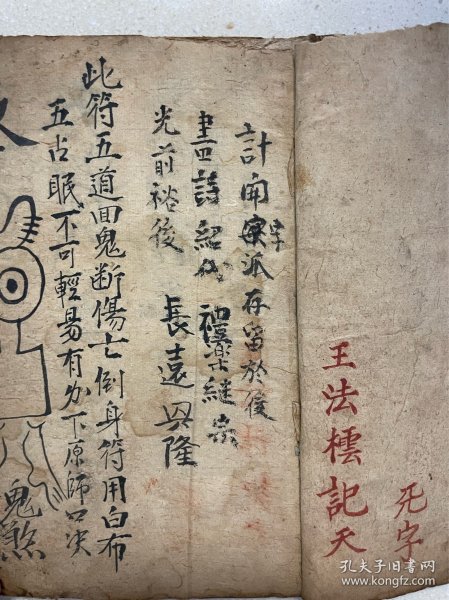 无字
王法橒記天
計開字派存留於後
書詩紹代 禮樂継宗
光前裕後 長遠興隆
此符五道回鬼断傷亡倒身符用白布
五占眠不可輕易有勿下原師口决
鬼煞
孔夫子旧书网
www.kongfz.com